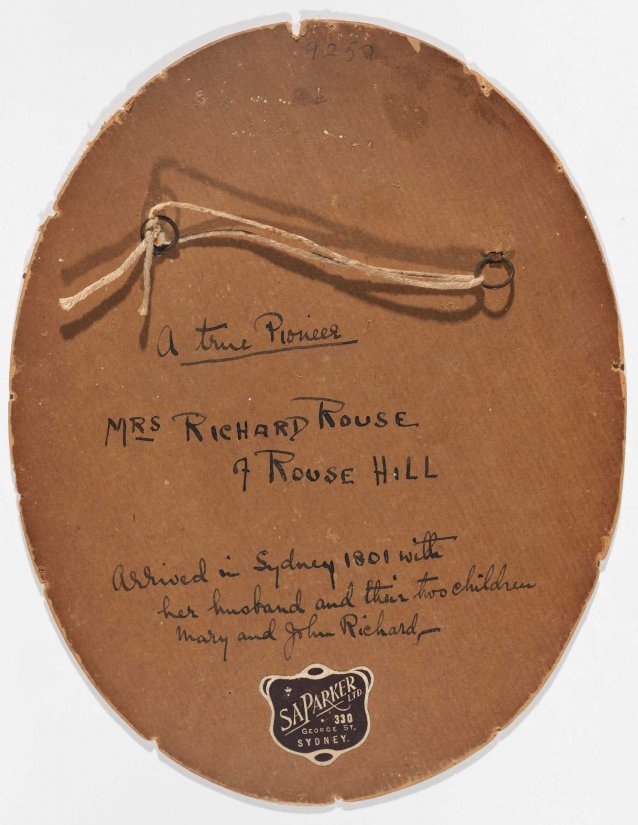 9250
A true Pioneer
MRS RICHARD ROUSE
of ROUSE HILL
Arrived in Sydney 1801 with
her husband and their two children
Mary and John Richard
S.A. PARKER LTD.
330
GEORGE ST,
SYDNEY.